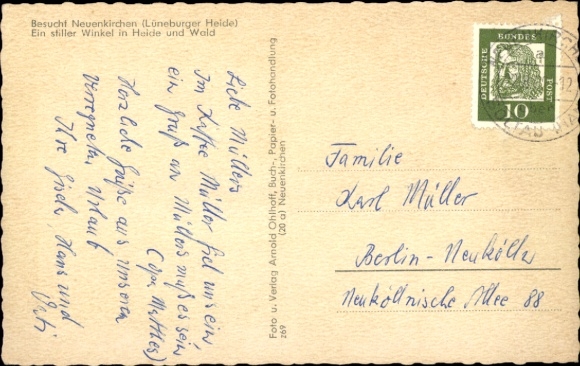 Besucht Neuenkirchen (Lüneburger Heide)
Ein stiller Winkel in Heide und Wald
Liebe Müllers
Im Kaffee Müller fiel uns ein,
ein Gruß an Müllers muß es sein
(Opa Matthes)
Herzliche Grüße aus unserem
verregneten Urlaub
Ihre Gisela, Hans und
Foto u. Verlag Arnold Ohlhoff, Buch-, Papier- u. Fotohandlung
(20 a) Neuenkirchen
269
DEUTSCHE
BUNDES
POST
10
Familie
Karl Müller
Berlin-Neukölln
Neuköllnische Allee 88